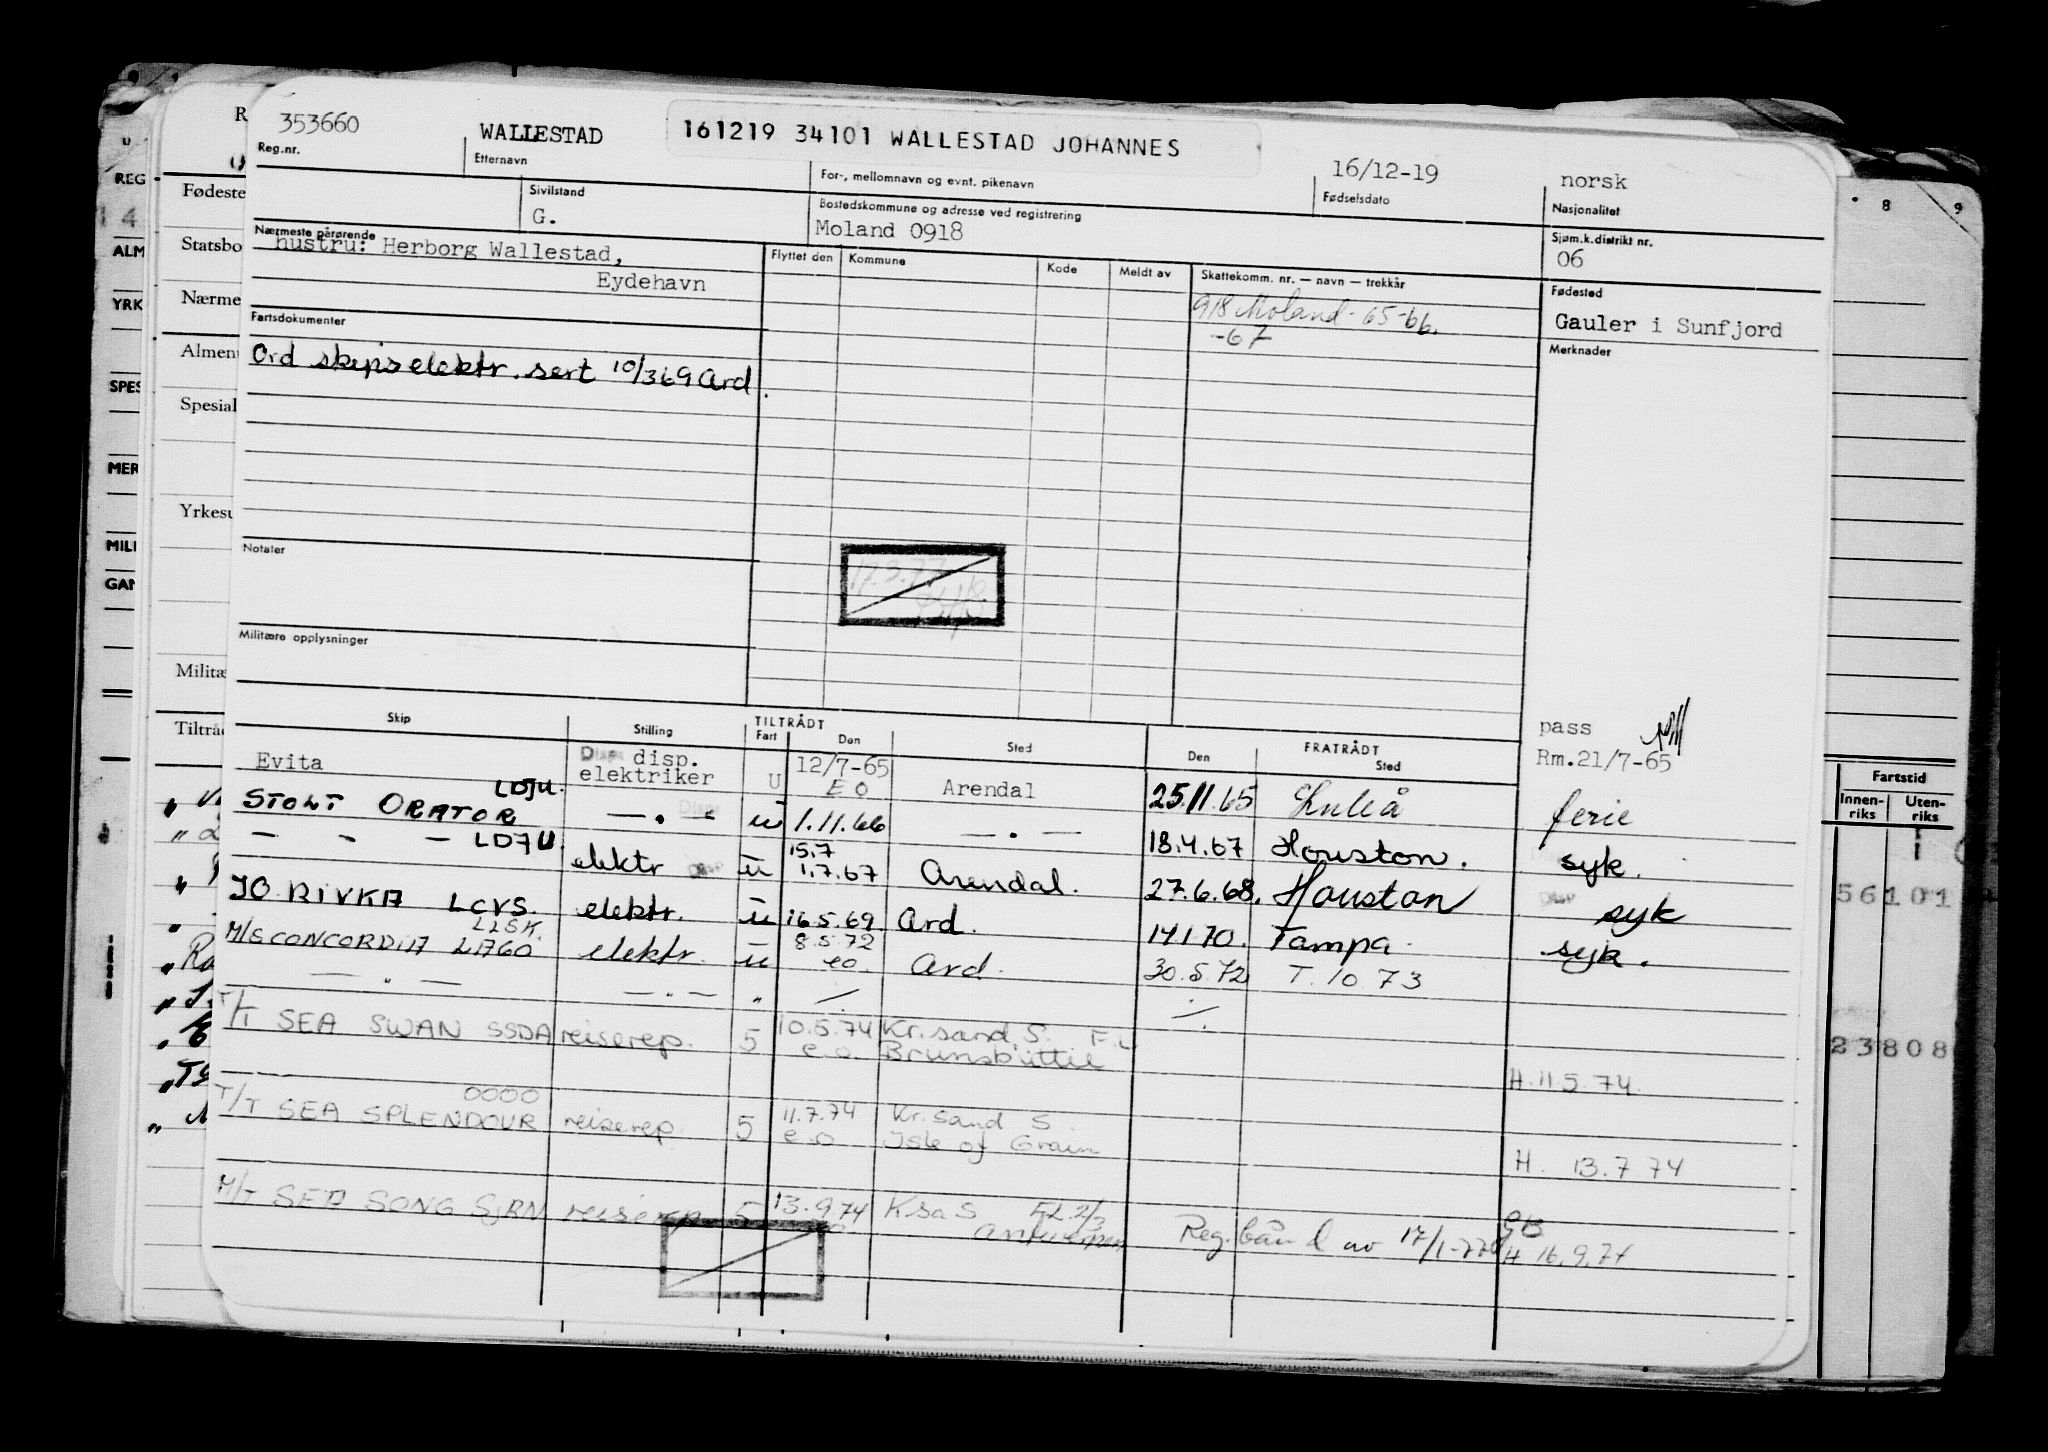 353660 WALLESTAD 161219 34101 WALLESTAD JOHANNES 16/12-19 norsk
Reg.nr. Etternavn For-, mellomnavn og evnt. pikenavn Fødselsdato Nasjonalitet
Sivilstand Bostedskommune og adresse ved registrering Sjøm.k.distrikt nr.
G. Moland 0918 06
Nærmeste pårørende Flyttet den Kommune Kode Meldt av Skattekomm. nr. — navn — trekkår Fødested
hustru: Herborg Wallestad,
Eydehavn
918 Moland - 65-66.
-67
Gauler i Sunfjord
Fartsdokumenter Merknader
Ord skipselektr. sert 10/369 Ard.
Notater
17.3.77
Militære opplysninger
Skip Stilling TILTRÅDT Fart Den Sted FRATRÅDT Den Sted
pass
Rm.21/7-65
Evita disp. elektriker U 12/7-65 EO Arendal 25.11.65 Luleå ferie
LDJU.
STOLT ORATOR — . — u 1.11.66 — . — 18.4.67 Houston. syk.
— - — LDJU. elektr u 15.7 1.7.67 Arendal. 27.6.68. Houston syk
JO BIVKA LCVS. elektr. u 16.5.69. Ard. 14.1.70. Tampa. syk.
LLSK.
M/S CONCORDIA LA60 elektr. u 8.5.72 eo. Ard. 30.5.72 T.10.73
— " — — " — " ./. ./.
T/T SEA SWAN SSDA reiserep. 5 10.5.74 e.o. Kr.sand. S. F.L
Brunsbüttel
H. 11.5.74.
0000
T/T SEA SPLENDOUR reiserep. 5 11.7.74 e.o Kr.sand S.
Isle of Grain
H. 13.7.74
M/T SEA SONG SJRN reiserep 5 13.9.74 KsaS FL 2/3
Reg.bånd av 17/1-77
H 16.9.74
REG
Fødeste
ALM
Statsbo
YRK
Nærme
Almen
SPES
Spesial
MER
Yrkesu
MILI
GAN
Militæ
Tiltråd
8 9
Fartstid
Innen-riks Uten-riks
56101
23808